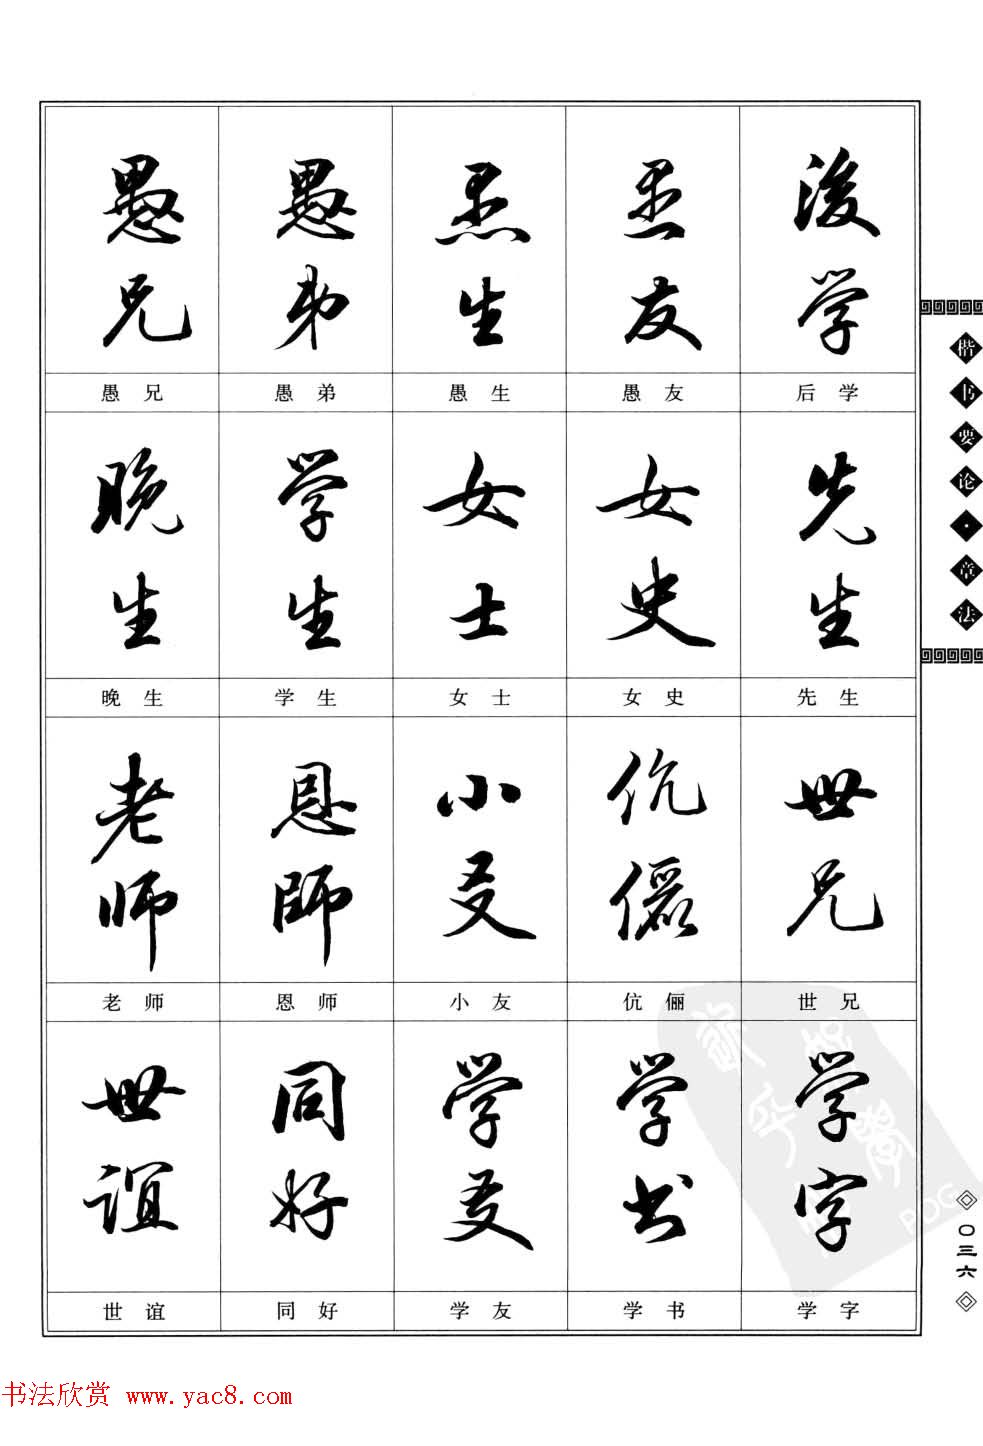 愚兄 愚弟 愚生 愚友 後学
愚兄 愚弟 愚生 愚友 后学
晚生 学生 女士 女史 先生
晚生 学生 女士 女史 先生
老师 恩師 小友 伉儷 世兄
老师 恩师 小友 伉俪 世兄
世谊 同好 学友 学书 学字
世谊 同好 学友 学书 学字
楷书要论·章法
〇三六
PDG
书法欣赏 www.yac8.com